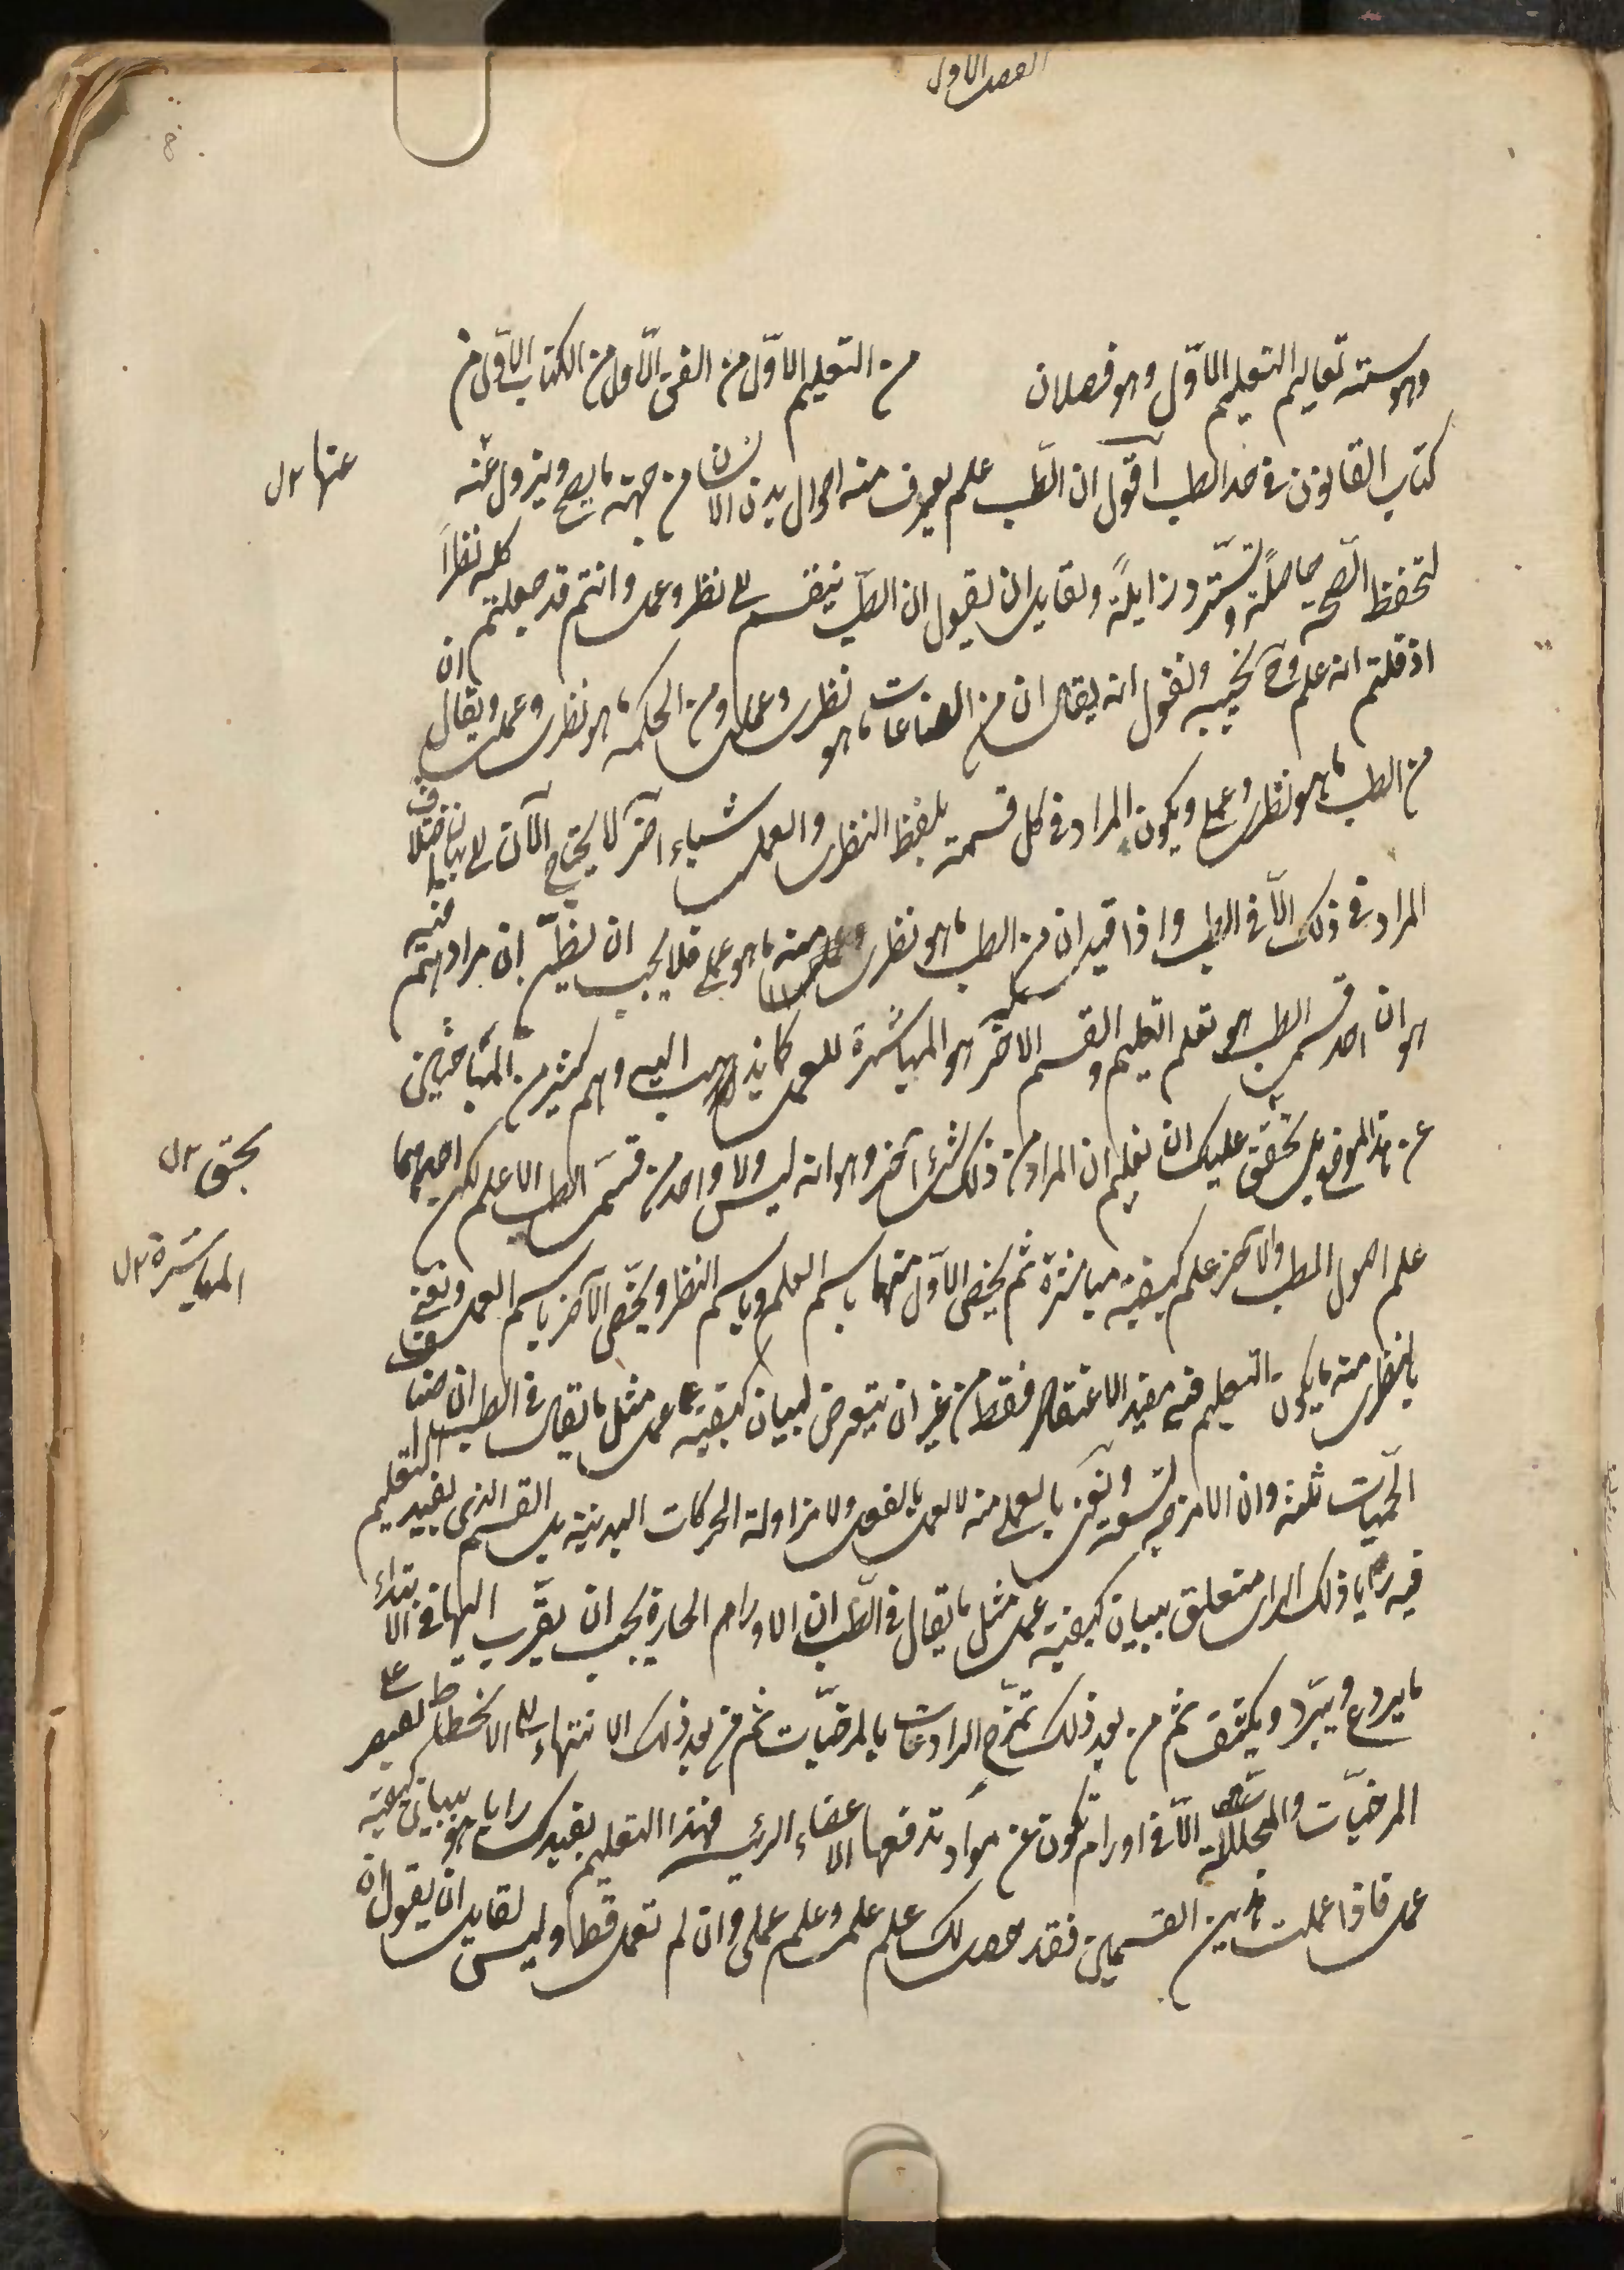 الفصل الاول
وهو ستة تعاليم التعليم الاوّل وهو فصلان من التعليم الاوّل من الفن الاوّل من الكتاب الاوّل من
كتاب القانون في حد الطب اقول ان الطّب علم يعرف منه احوال بدن الانسان من جهة ما يصح ويزول عنه
عنها ں
لتحفظ الصّحة حاصلةً وتستردّ زايلةً ولقايل ان يقول ان الطّب ينقسم الى نظر وعمل وانتم قد جعلتم كله نظراً
اذ قلتم انه علم وح نجيبه ونقول انه يقال ان من الصناعات ما هو نظرى وعملى ومن الحكمة ما هو نظرى وعملى ويقال ان
من الطب ما هو نظرى وعملى ويكون المراد في كل قسمة بلفظ النظرى والعملى شياء آخر لا يحتاج الآن الى بيان اختلاف
المراد في ذلك الّا في الطب واذا قيل ان من الطب ما هو نظرى ومنه ما هو عملى فلا يجب ان يظنّ ان مرادهم فيه
هو ان احد قسمى الطب هو تعلم التعليم والقسم الآخر هو المباشرة للعمل كما يذهب اليه وهم كثير من الباحثين
عن هذا الموضع بل تحقق عليك ان تعلم ان المراد من ذلك شئ آخر وهو انه ليس ولا واحد من قسمى الطب الا علم لكن احدهما
يحق ں
علم اصول الطب والآخر علم كيفية مباشرة ثم يخص الاوّل منهما باسم العلم وباسم النظر ويخصّ الآخر باسم العمل ونعنى
المباشرة ں
بالنظرى منه ما يكون التعليم فيه مفيد الاعتقاد فقط من غير ان يتعرض لبيان كيفية عمل مثل ما يقال في الطب ان اصناف
الحمّيات ثلثة وان الامزجة تسعة ونعنى بالعملى منه لا العمل بالفعل ولا مزاولة الحركات البدنية بل القسم الذى يفيد التعليم
فيه رايا ذلك الراى متعلق ببيان كيفية عمل مثل ما يقال في الطّب ان الاورام الحارة يجب ان يقرّب اليها في الابتداء
ما يردع ويبرّد ويكثف ثم من بعد ذلك تمزج الرادعات بالمرخيّات ثم من بعد ذلك الانتهاء الى الانحطاط يقتصر على
المرخيّات والمحللة الّا في اورام تكون عن مواد تدفعها الاعضاء الرئيسه فهذا التعليم يفيدك رايا هو ببيان كيفية
عمل فاذا عملت هذين القسمين فقد حصل لك علم علمى وعلم عملى وان لم تعمل قط وليس لقايل ان يقول ان